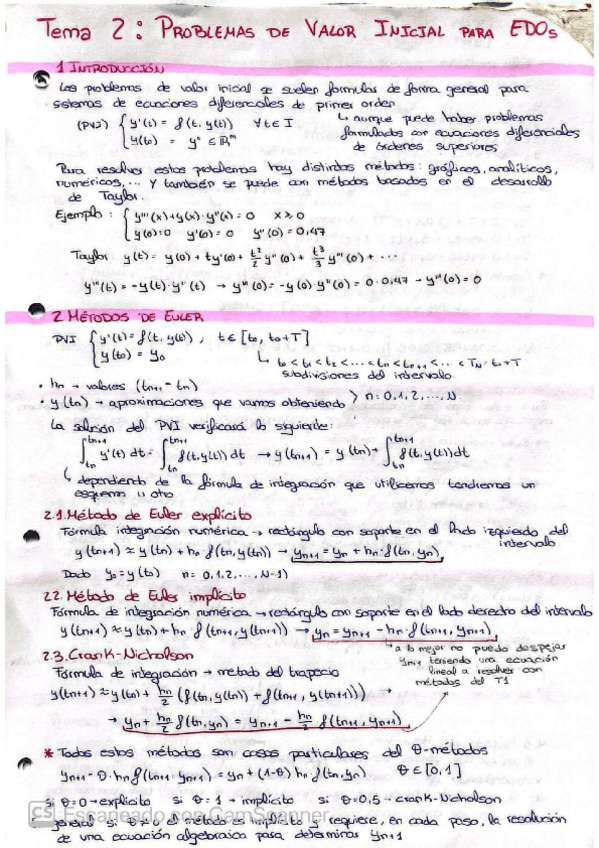 Tema 2: PROBLEMAS DE VALOR INICIAL PARA EDOs
1 INTRODUCCIÓN
Los problemas de valor inicial se suelen formular de forma general para
sistemas de ecuaciones diferenciales de primer orden
(PVI) { y'(t) = f(t, y(t)) ∀t∈I
y(t₀) = y⁰ ∈ ℝᵐ
↳ aunque puede haber problemas
formulados con ecuaciones diferenciales
de órdenes superiores
Para resolver estos problemas hay distintos métodos: gráficos, analíticos,
numéricos,... Y también se puede con métodos basados en el desarrollo
de Taylor.
Ejemplo: { y'''(x)+y(x)·y''(x)=0 x≥0
y(0)=0 y'(0)=0 y''(0)=0,47
Taylor: y(t) = y(0) + ty'(0) + t²/2 y''(0) + t³/3 y'''(0) + ...
y'''(t) = -y(t)·y''(t) → y'''(0) = -y(0)·y''(0) = 0·0,47 → y'''(0) = 0
2 MÉTODOS DE EULER
PVI { y'(t) = f(t, y(t)), t∈[t₀, t₀+T]
y(t₀) = y₀
↳ t₀<t₁<t₂<...<tₙ<tₙ₊₁<...<T_N=t₀+T
subdivisiones del intervalo.
• hₙ → valores (tₙ₊₁ - tₙ)
• y(tₙ) → aproximaciones que vamos obteniendo > n=0,1,2,...,N
La solución del PVI verificará lo siguiente:
∫ₜₙᵗⁿ⁺¹ y'(t) dt = ∫ₜₙᵗⁿ⁺¹ f(t,y(t)) dt → y(tₙ₊₁) = y(tₙ) + ∫ₜₙᵗⁿ⁺¹ f(t,y(t)) dt
↳ dependiendo de la fórmula de integración que utilicemos tendremos un
esquema u otro.
2.1. Método de Euler explícito
Fórmula integración numérica → rectángulo con soporte en el lado izquierdo del
intervalo
y(tₙ₊₁) ≈ y(tₙ) + hₙ f(tₙ, y(tₙ)) → yₙ₊₁ = yₙ + hₙ·f(tₙ, yₙ)
Dado y₀ = y(t₀) n=0,1,2,...,N-1)
2.2. Método de Euler implícito
Fórmula de integración numérica → rectángulo con soporte en el lado derecho del intervalo
y(tₙ₊₁) ≈ y(tₙ) + hₙ f(tₙ₊₁, y(tₙ₊₁)) → yₙ = yₙ₊₁ - hₙ f(tₙ₊₁, yₙ₊₁)
↳ a lo mejor no puedo despejar
yₙ₊₁ teniendo una ecuación
lineal a resolver con
métodos del T1
2.3. Crank-Nicholson
Fórmula de integración → metodo del trapecio
y(tₙ₊₁) ≈ y(tₙ) + hₙ/2 (f(tₙ, y(tₙ)) + f(tₙ₊₁, y(tₙ₊₁))) →
→ yₙ + hₙ/2 f(tₙ, yₙ) = yₙ₊₁ - hₙ/2 f(tₙ₊₁, yₙ₊₁)
* Todos estos métodos son casos particulares del θ-métodos
yₙ₊₁ - θ·hₙ f(tₙ₊₁, yₙ₊₁) = yₙ + (1-θ) hₙ f(tₙ, yₙ) θ∈[0,1]
si θ=0 → explícito si θ=1 → implícito si θ=0.5 → crank-Nicholson
CS Escaneado con CamScanner
general si θ≠0 el método es implícito y requiere, en cada paso, la resolución
de una ecuación algebraica para determinar yₙ₊₁